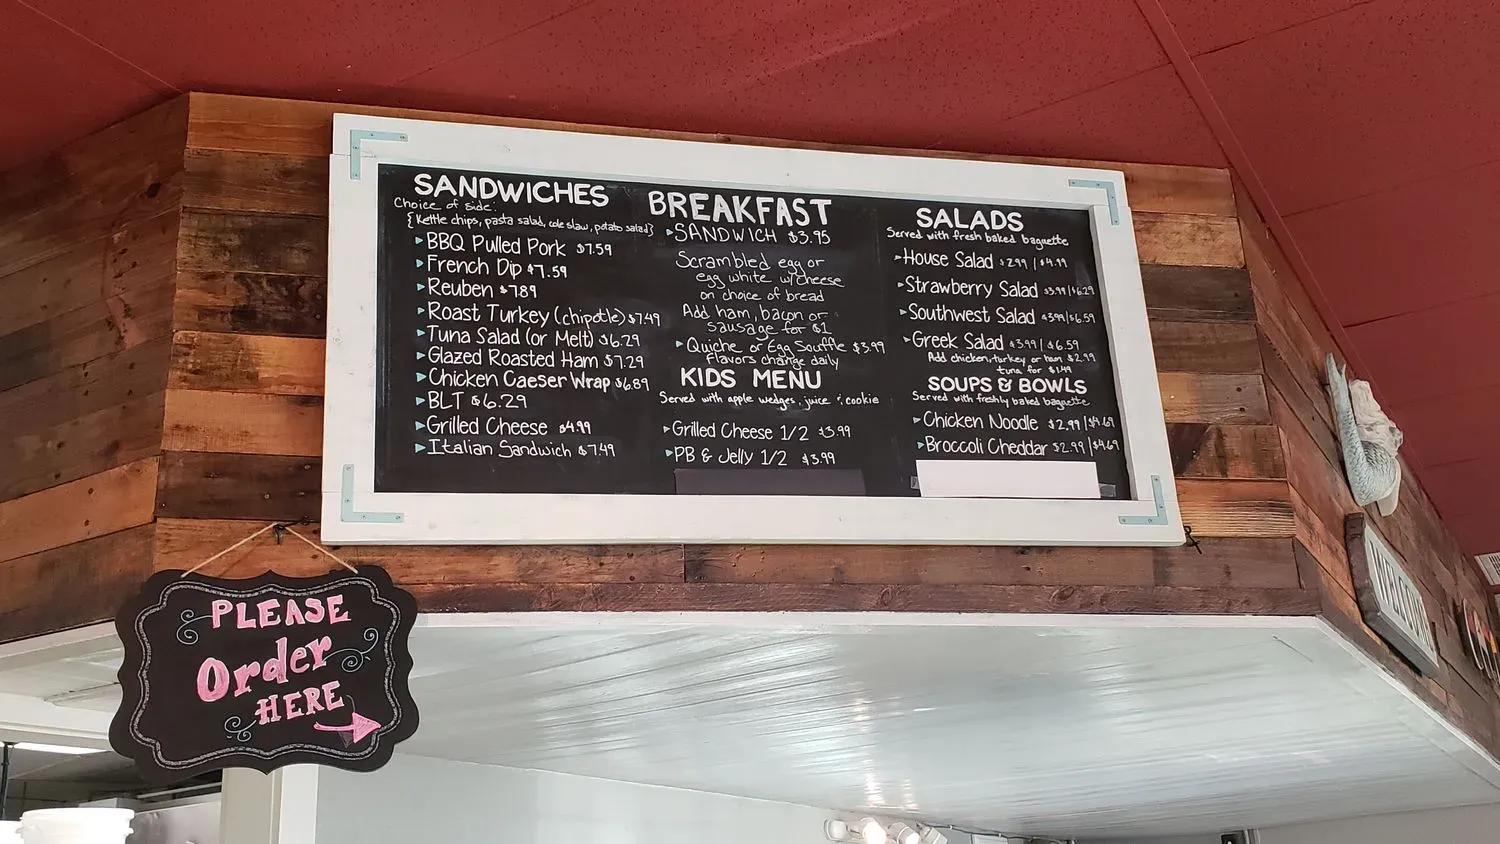 SANDWICHES
Choice of side:
{Kettle chips, pasta salad, cole slaw, potato salad}
BBQ Pulled Pork $7.59
French Dip $7.59
Reuben $7.89
Roast Turkey (chipotle) $7.49
Tuna Salad (or Melt) $6.29
Glazed Roasted Ham $7.29
Chicken Caeser Wrap $6.89
BLT $6.29
Grilled Cheese $4.99
Italian Sandwich $7.49
BREAKFAST
SANDWICH $3.95
Scrambled egg or
egg white w/cheese
on choice of bread
Add ham, bacon or
sausage for $1
Quiche or Egg Souffle $3.99
Flavors change daily
KIDS MENU
Served with apple wedges, juice & cookie
Grilled Cheese 1/2 $3.99
PB & Jelly 1/2 $3.99
SALADS
Served with fresh baked baguette
House Salad $2.99 | $4.99
Strawberry Salad $3.99 | $6.29
Southwest Salad $3.99 | $6.59
Greek Salad $3.99 | $6.59
Add chicken, turkey or ham $2.99
tuna for $1.49
SOUPS & BOWLS
Served with freshly baked baguette
Chicken Noodle $2.99 | $4.69
Broccoli Cheddar $2.99 | $4.69
PLEASE
Order
HERE